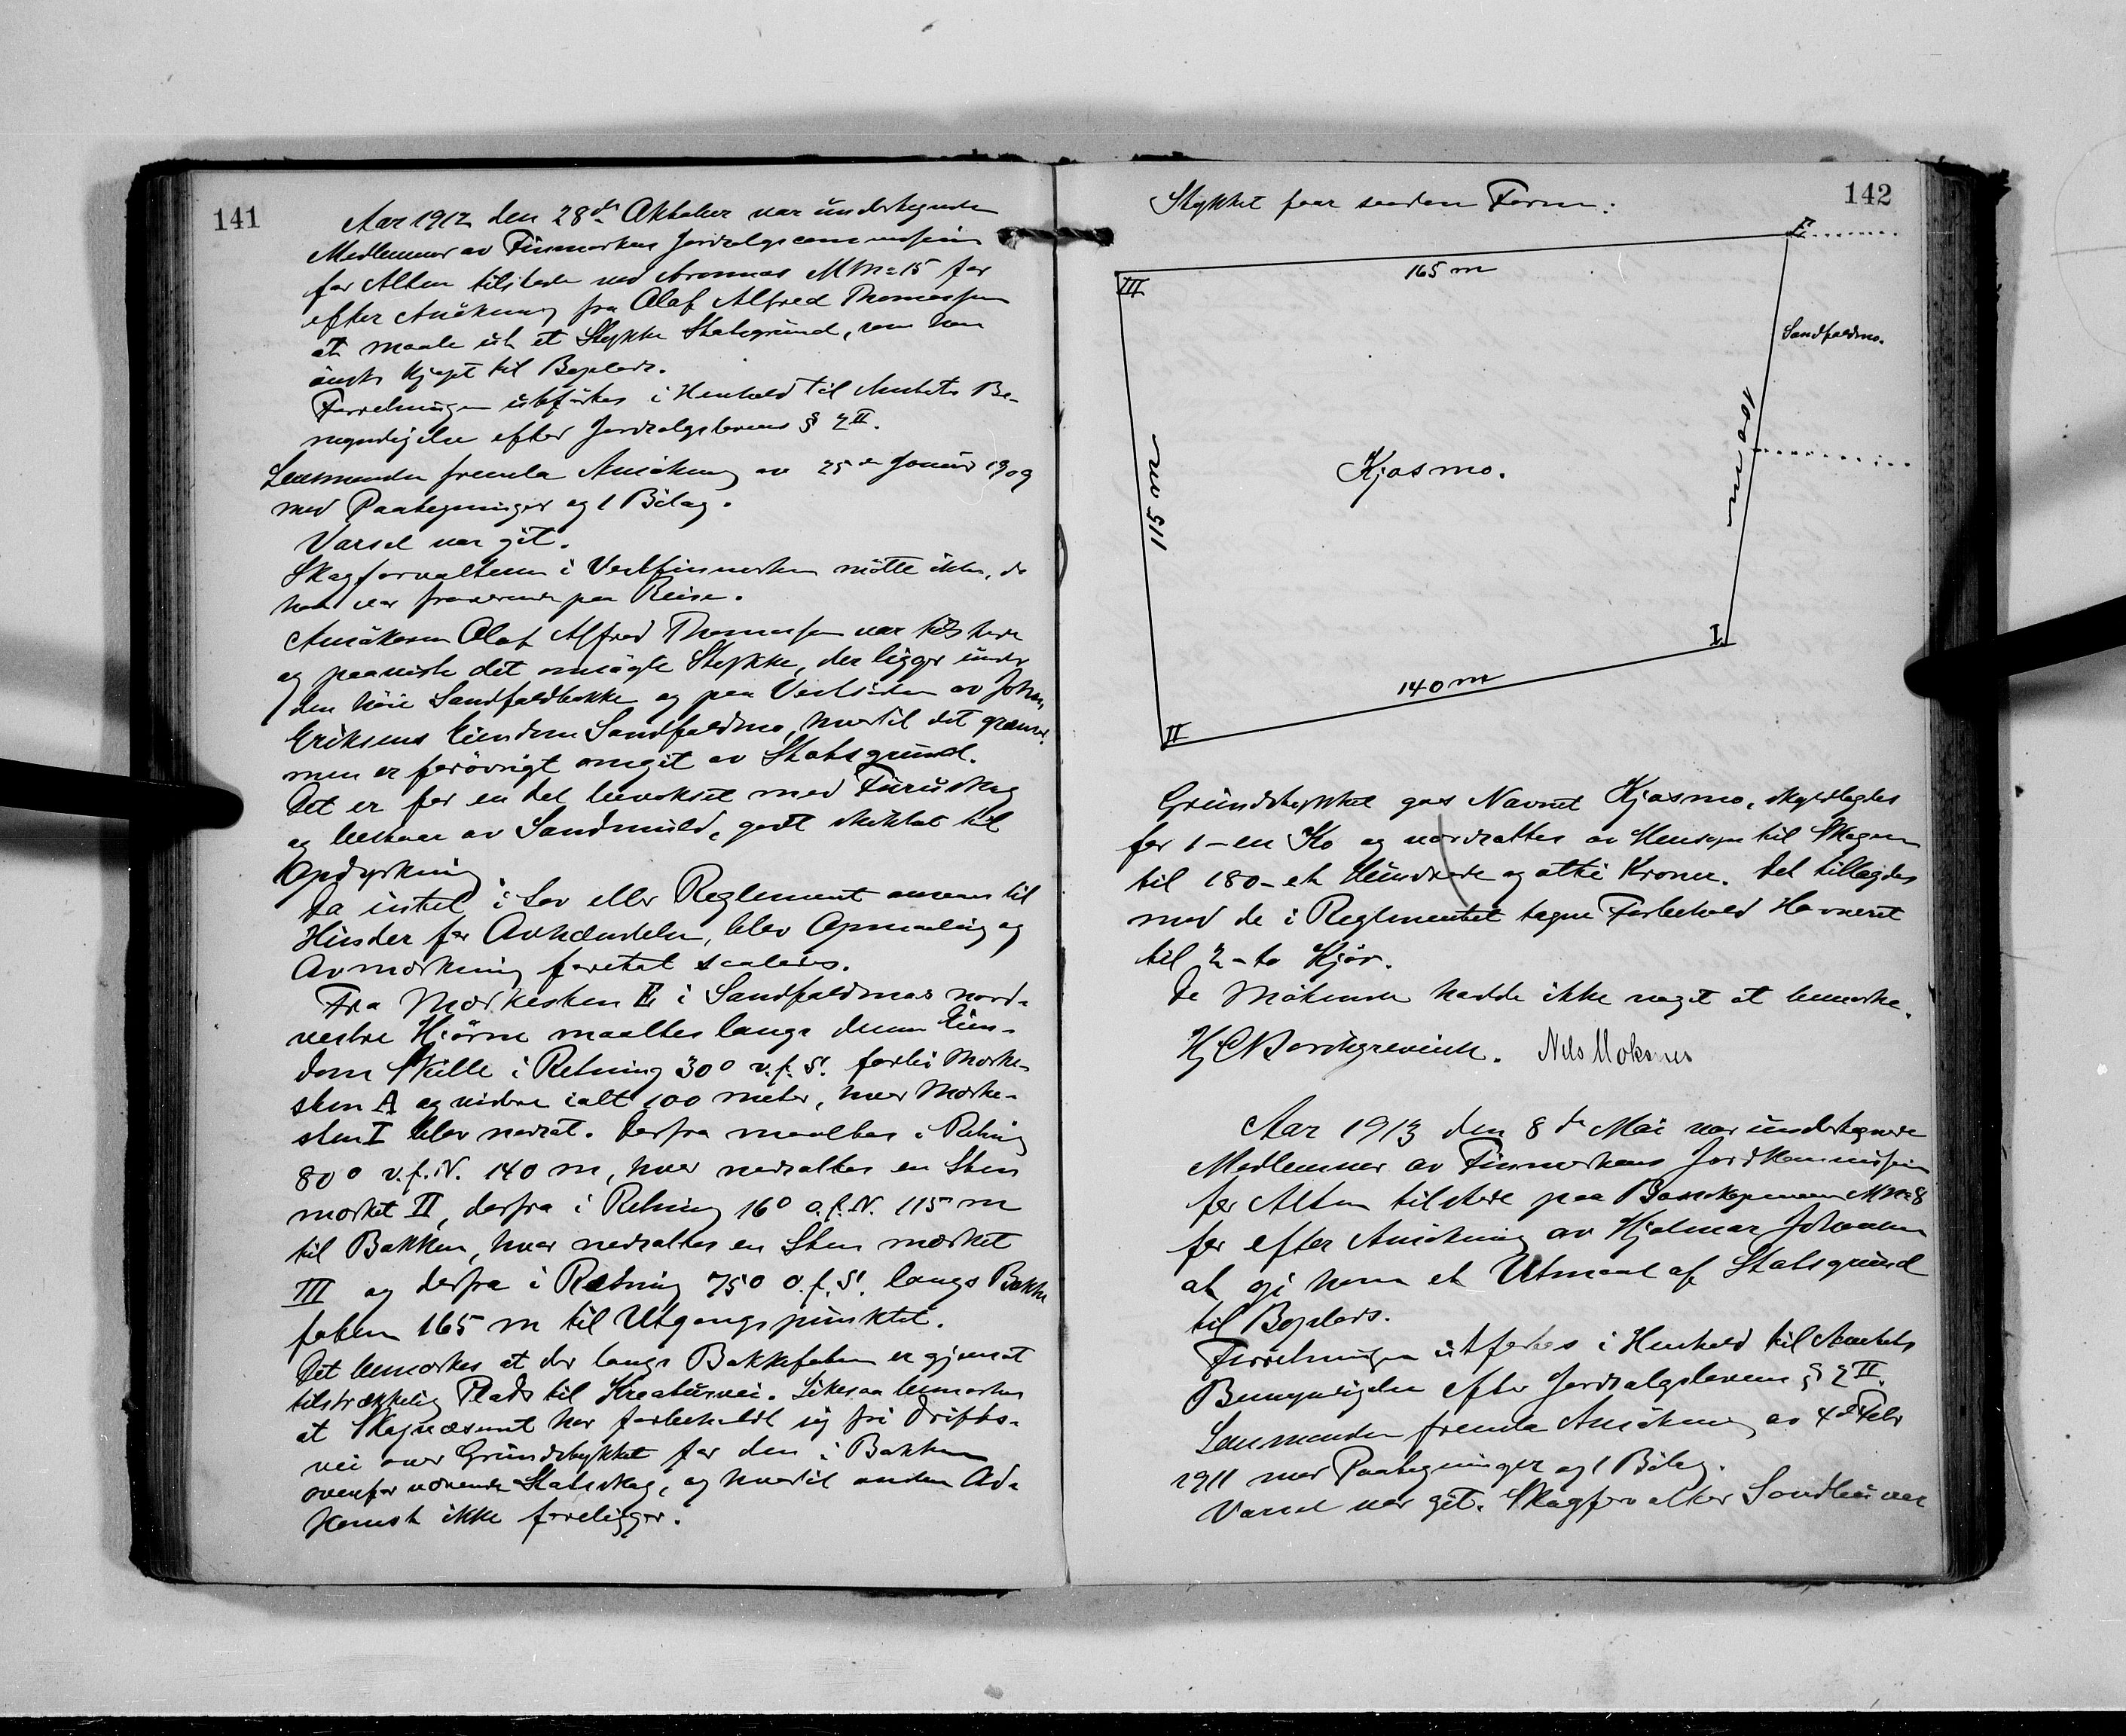 141
Aar 1912 den 28de Oktober var undertegnede
Medlemmer av Finmarkens Jordsalgscommission
for Alten tilstede ved Aronnes M No 15 for
efter Ansökning fra Olaf Alfred Thomassen
at maale ut et Stykke Statsgrund, som han
önsker kjøpt til Boplads.
Forretningen utførtes i Henhold til Amtets Be-
myndigelse efter Jordsalgslovens § 2 II.
Lensmanden fremla Ansökning av 25de Januar 1909
med Paategninger og 1 Bilag.
Varsel var git.
Skogforvalteren i Vestfinmarken mötte ikke, da
han var fraværende paa Reise.
Ansökeren Olaf Alfred Thomassen var tilstede
og paaviste det ansøgte Stykke, der ligger under
den höie Sandfaldbakke og paa Vestsiden av Johan
Eriksens Eiendom Sandfaldmo, hvortil det grænser,
men er forövrigt omgit av Statsgrund.
Det er for en del bevokset med Furuskog
og bestaar av Sandmuld, godt skikket til
Opdyrkning.
Da intet i Lov eller Reglement ansees til
Hinder for Avhændelse, blev Opmaaling og
Avmerkning foretat saaledes.
Fra Merkesten E i Sandfaldmos nord-
vestre Hjörne maaltes langs denne Eien-
doms Skille i Retning 30° v.f.S. forbi Merke-
sten A og videre ialt 100 meter, hvor Merke-
sten I blev nedsat. Derfra maaltes i Retning
80° v.f.N. 140 m, hvor nedsattes en Sten
merket II, derfra i Retning 16° o.f.N. 115 m
til Bakken, hvor nedsattes en Sten merket
III og derfra i Retning 75° o.f.S. langs Bakke
foten 165 m til Utgangspunktet.
Det bemerkes at der langs Bakkefoten er gjenlat
tilstrækkelig Plads til Kreaturvei. Likesaa bemerkes
at Skogvæsenet har forbeholdt sig fri Drifts-
vei over Grundstykket for den i Bakken
ovenfor værende Statsskog, og hvortil anden Ad-
komst ikke foreligger.
142
Stykket faar saadan Form:
E
III
165 m
Sandfaldmo.
100 m
115 m
Kjosmo.
I
140 m
II
Grundstykket gaves Navnet Kjosmo, skyldlagdes
for 1 - en Ko og værdsattes av Hensyn til Skogen
til 180 - et Hundrede og otti Kroner. Det tillægdes
med de i Reglementet tagne Forbehold Havneret
til 2 - to Kjör.
De Mötende hadde ikke noget at bemerke.
Hj C Borchgrevink. Nils Moksnes
Aar 1913 den 8de Mai var undertegnede
Medlemmer av Finmarkens Jordkommission
for Alten tilstede paa Bossekopmoen M No 8
for efter Ansökning av Hjalmar Johansen
at gi ham et Utmaal af Statsgrund
til Boplads.
Forretningen utførtes i Henhold til Amtets
Bemyndigelse efter Jordsalgslovens § 2 II.
Lensmanden fremla Ansökning av 4de Febr
1911 med Paategninger og 1 Bilag.
Varsel var git. Skogforvalter